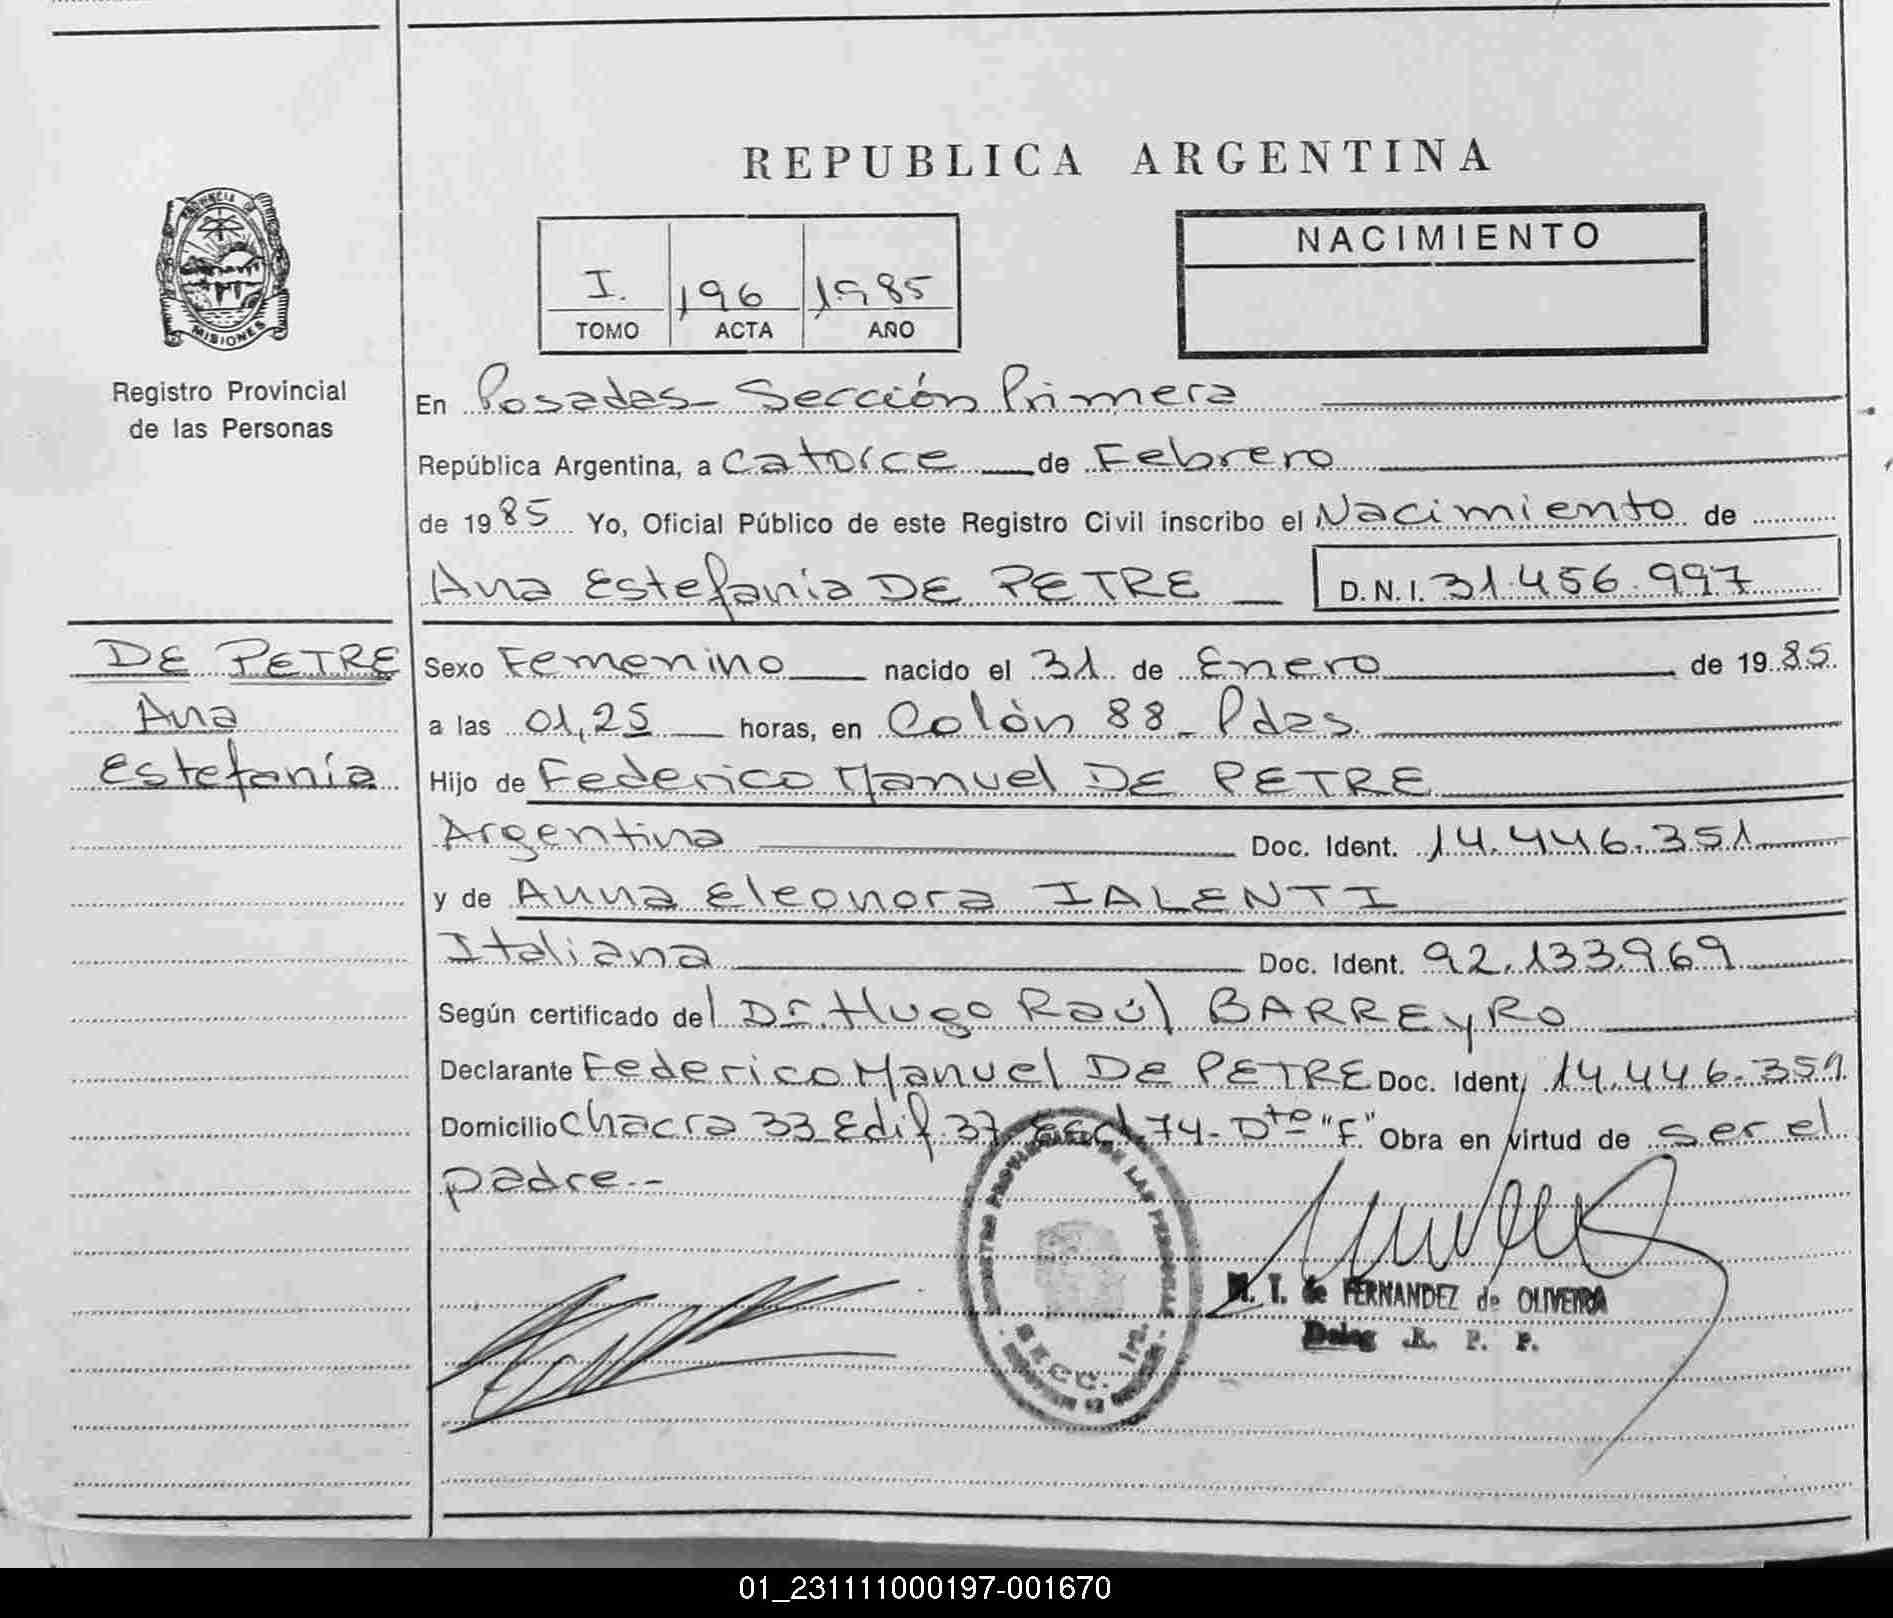 REPUBLICA ARGENTINA
PROVINCIA DE
MISIONES
Registro Provincial
de las Personas
I. 196 1985
TOMO ACTA AÑO
NACIMIENTO
En Posadas - Sección Primera
República Argentina, a catorce de Febrero
de 1985 Yo, Oficial Público de este Registro Civil inscribo el Nacimiento de
Ana Estefanía DE PETRE D.N.I. 31.456.997
DE PETRE
Ana
Estefanía
Sexo Femenino nacido el 31 de Enero de 1985
a las 01,25 horas, en Colón 88 - Pdas.
Hijo de Federico Manuel DE PETRE
Argentina Doc. Ident. 14.446.351
y de Anna Eleonora IALENTI
Italiana Doc. Ident. 92.133.969
Según certificado del Dr. Hugo Raúl BARREyRO
Declarante Federico Manuel DE PETRE Doc. Ident. 14.446.351
Domicilio Chacra 33 Edif. 37 74 - Dto "F" Obra en virtud de ser el
padre.-
REGISTRO PROVINCIAL DE LAS PERSONAS
SECC. 1ra.
M. T. de FERNANDEZ de OLIVEIRA
Deleg R. P. P.
01_231111000197-001670